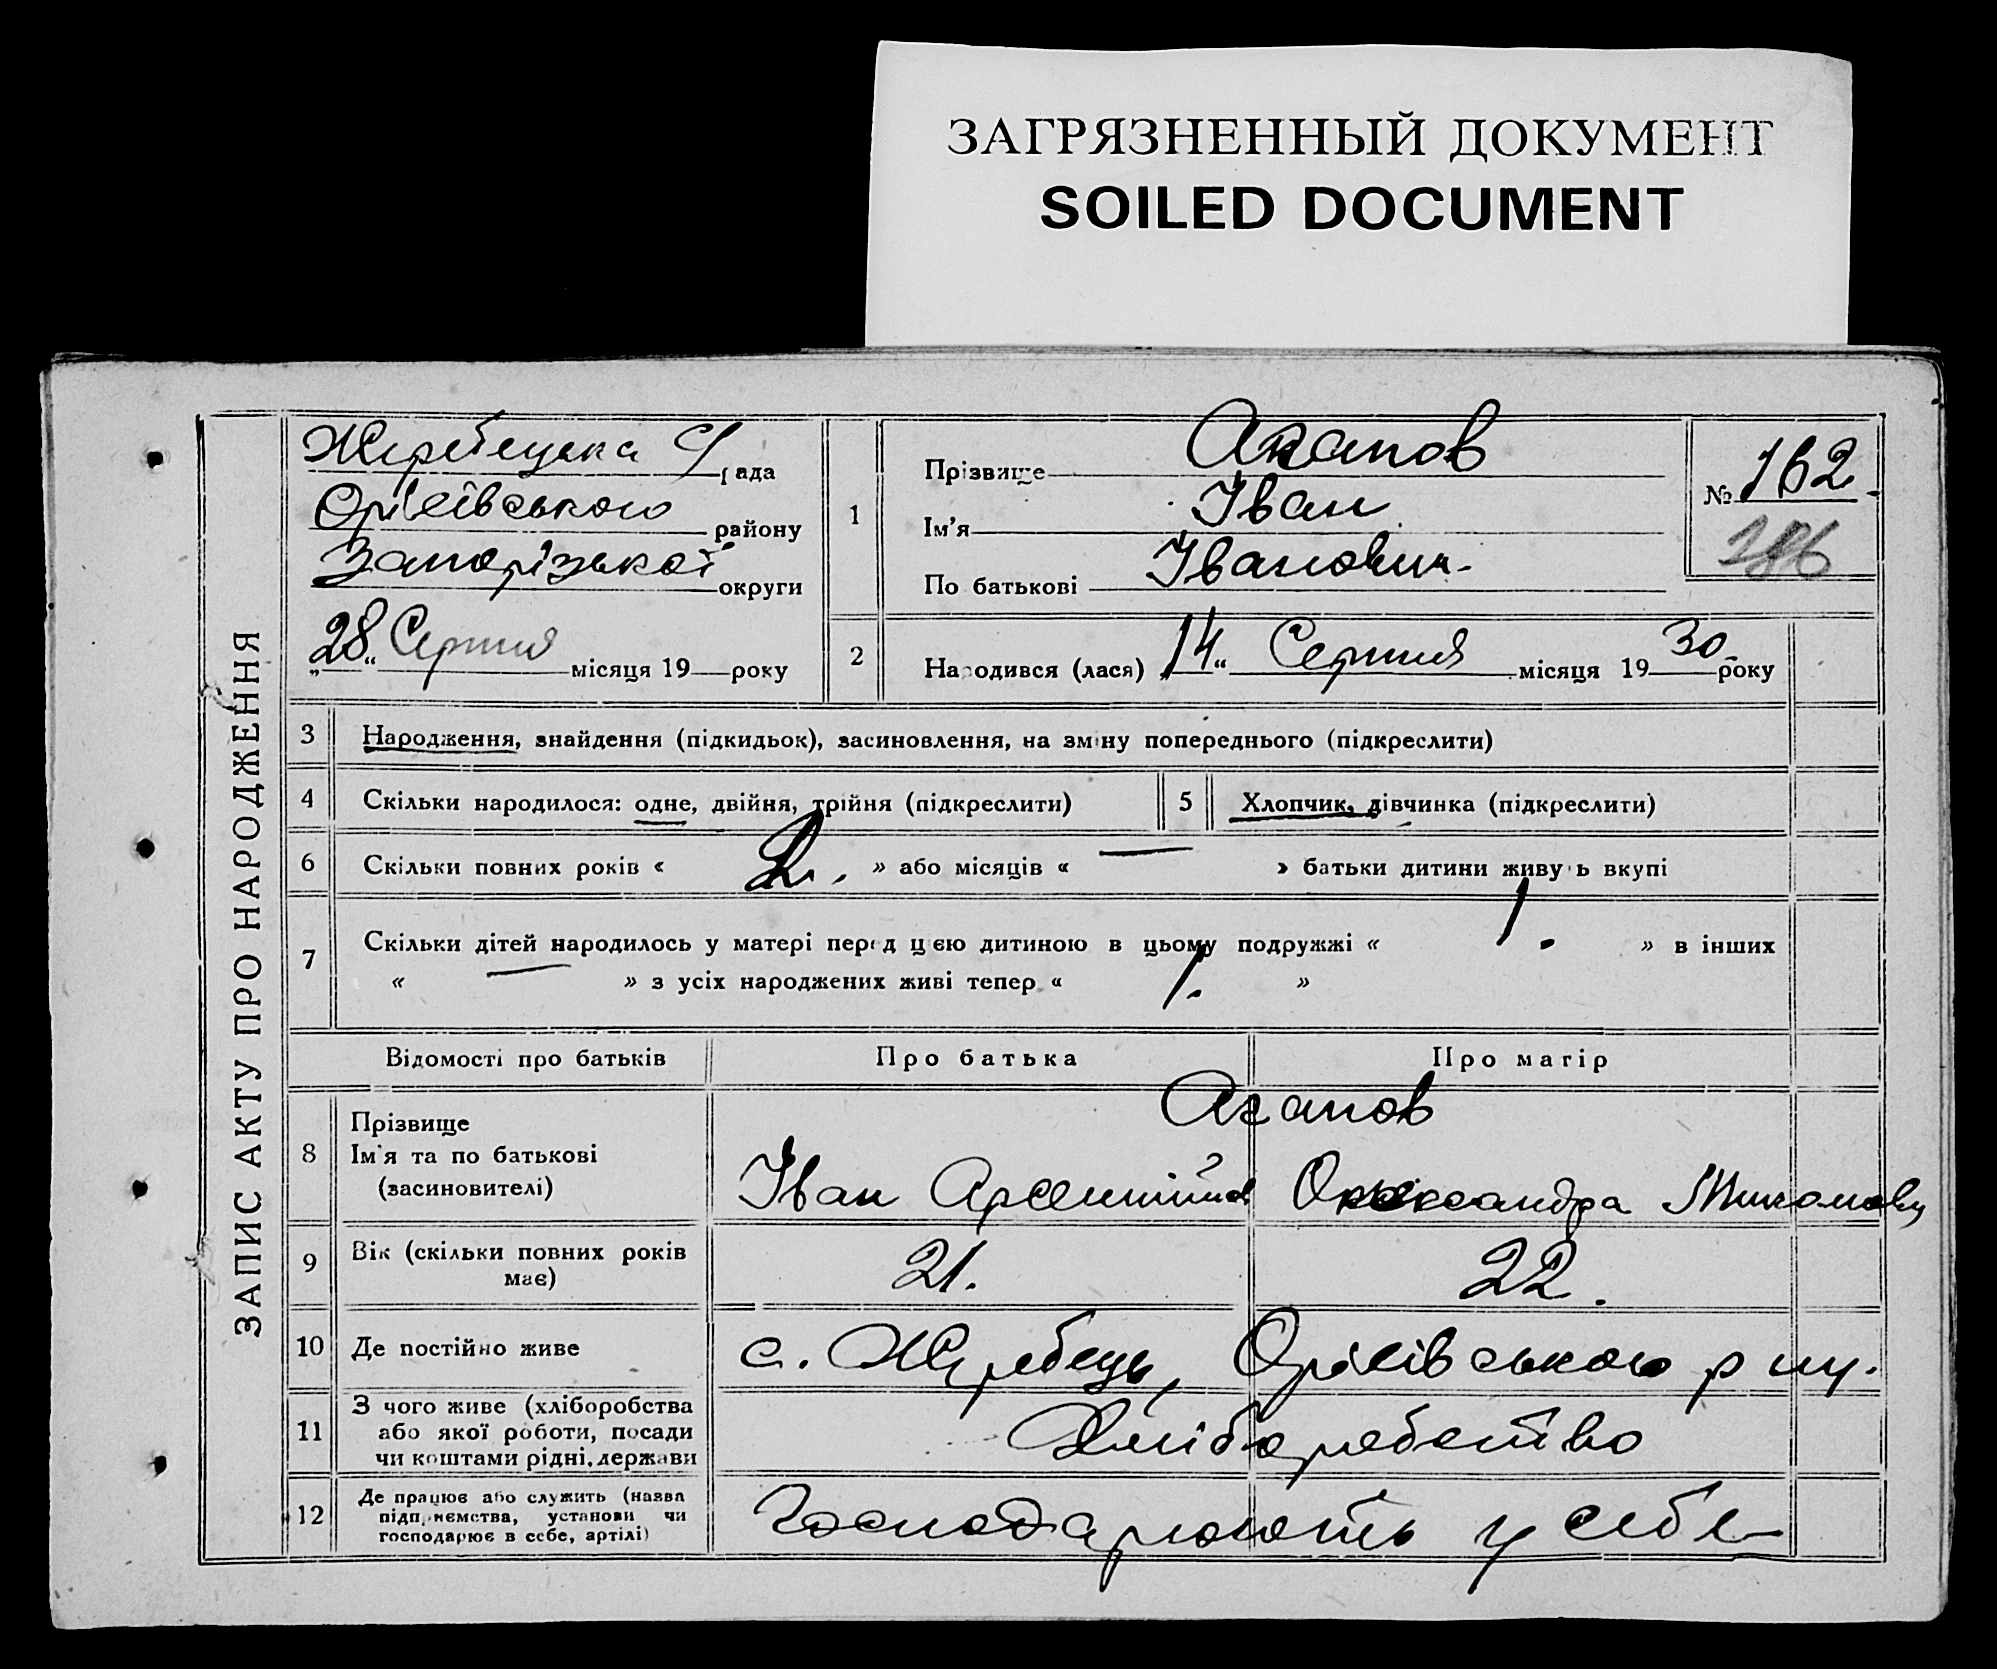 ЗАГРЯЗНЕННЫЙ ДОКУМЕНТ
SOILED DOCUMENT
ЗАПИС АКТУ ПРО НАРОДЖЕННЯ
Жеребецька С/рада
Оріхівського району
Запорізької округи
„28“ Серпня місяця 19 року
1
Прізвище Агапов
Ім'я Іван
По батькові Іванович
№ 162
186
2 Народився (лася) 14“ Серпня місяця 1930 року
3 Народження, знайдення (підкидьок), засиновлення, на зміну попереднього (підкреслити)
4 Скільки народилося: одне, двійня, трійня (підкреслити) 5 Хлопчик, дівчинка (підкреслити)
6 Скільки повних років « » або місяців « — » батьки дитини живуть вкупі
7 Скільки дітей народилось у матері перед цією дитиною в цьому подружжі « 1. » в інших
« — » з усіх народжених живі тепер « 1. »
Відомості про батьків Про батька Про матір
8 Прізвище Агапов
Ім'я та по батькові Іван Олександра
(засиновителі)
9 Вік (скільки повних років 21. 22.
має)
10 Де постійно живе с. Жеребець, Оріхівського р-ну.
11 З чого живе (хліборобства
або якої роботи, посади Хліборобство
чи коштами рідні, держави
12 Де працює або служить (назва
підприємства, установи чи Господарюють у себе
господарює в себе, артілі)